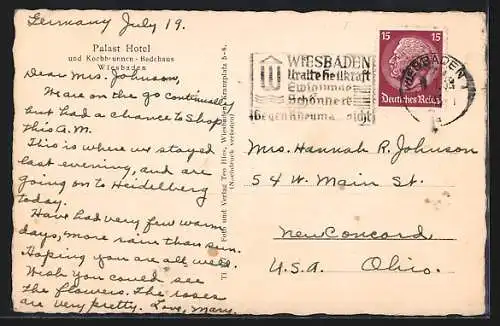 Germany July 19.
Palast Hotel
und Kochbrunnen-Badehaus
Wiesbaden
Dear Mrs. Johnson,
We are on the go continually
but had a chance to shop
this A.M.
This is where we stayed
last evening, and are
going on to Heidelberg
today.
Have had very few warm
days, more rain than sun.
Hoping you are all well.
Wish you could see
the flowers. The roses
are very pretty. Love, Mary.
Foto und Verlag Teo Wiesbaden
(Nachdruck verboten)
WIESBADEN
Uralte Heilkraft
Ewig junge
Schönheit
Gegen Rheuma Gicht
15 15
Deutsches Reich
WIESBADEN
Mrs. Hannah R. Johnson
54 W. Main St.
New Concord
U.S.A. Ohio.